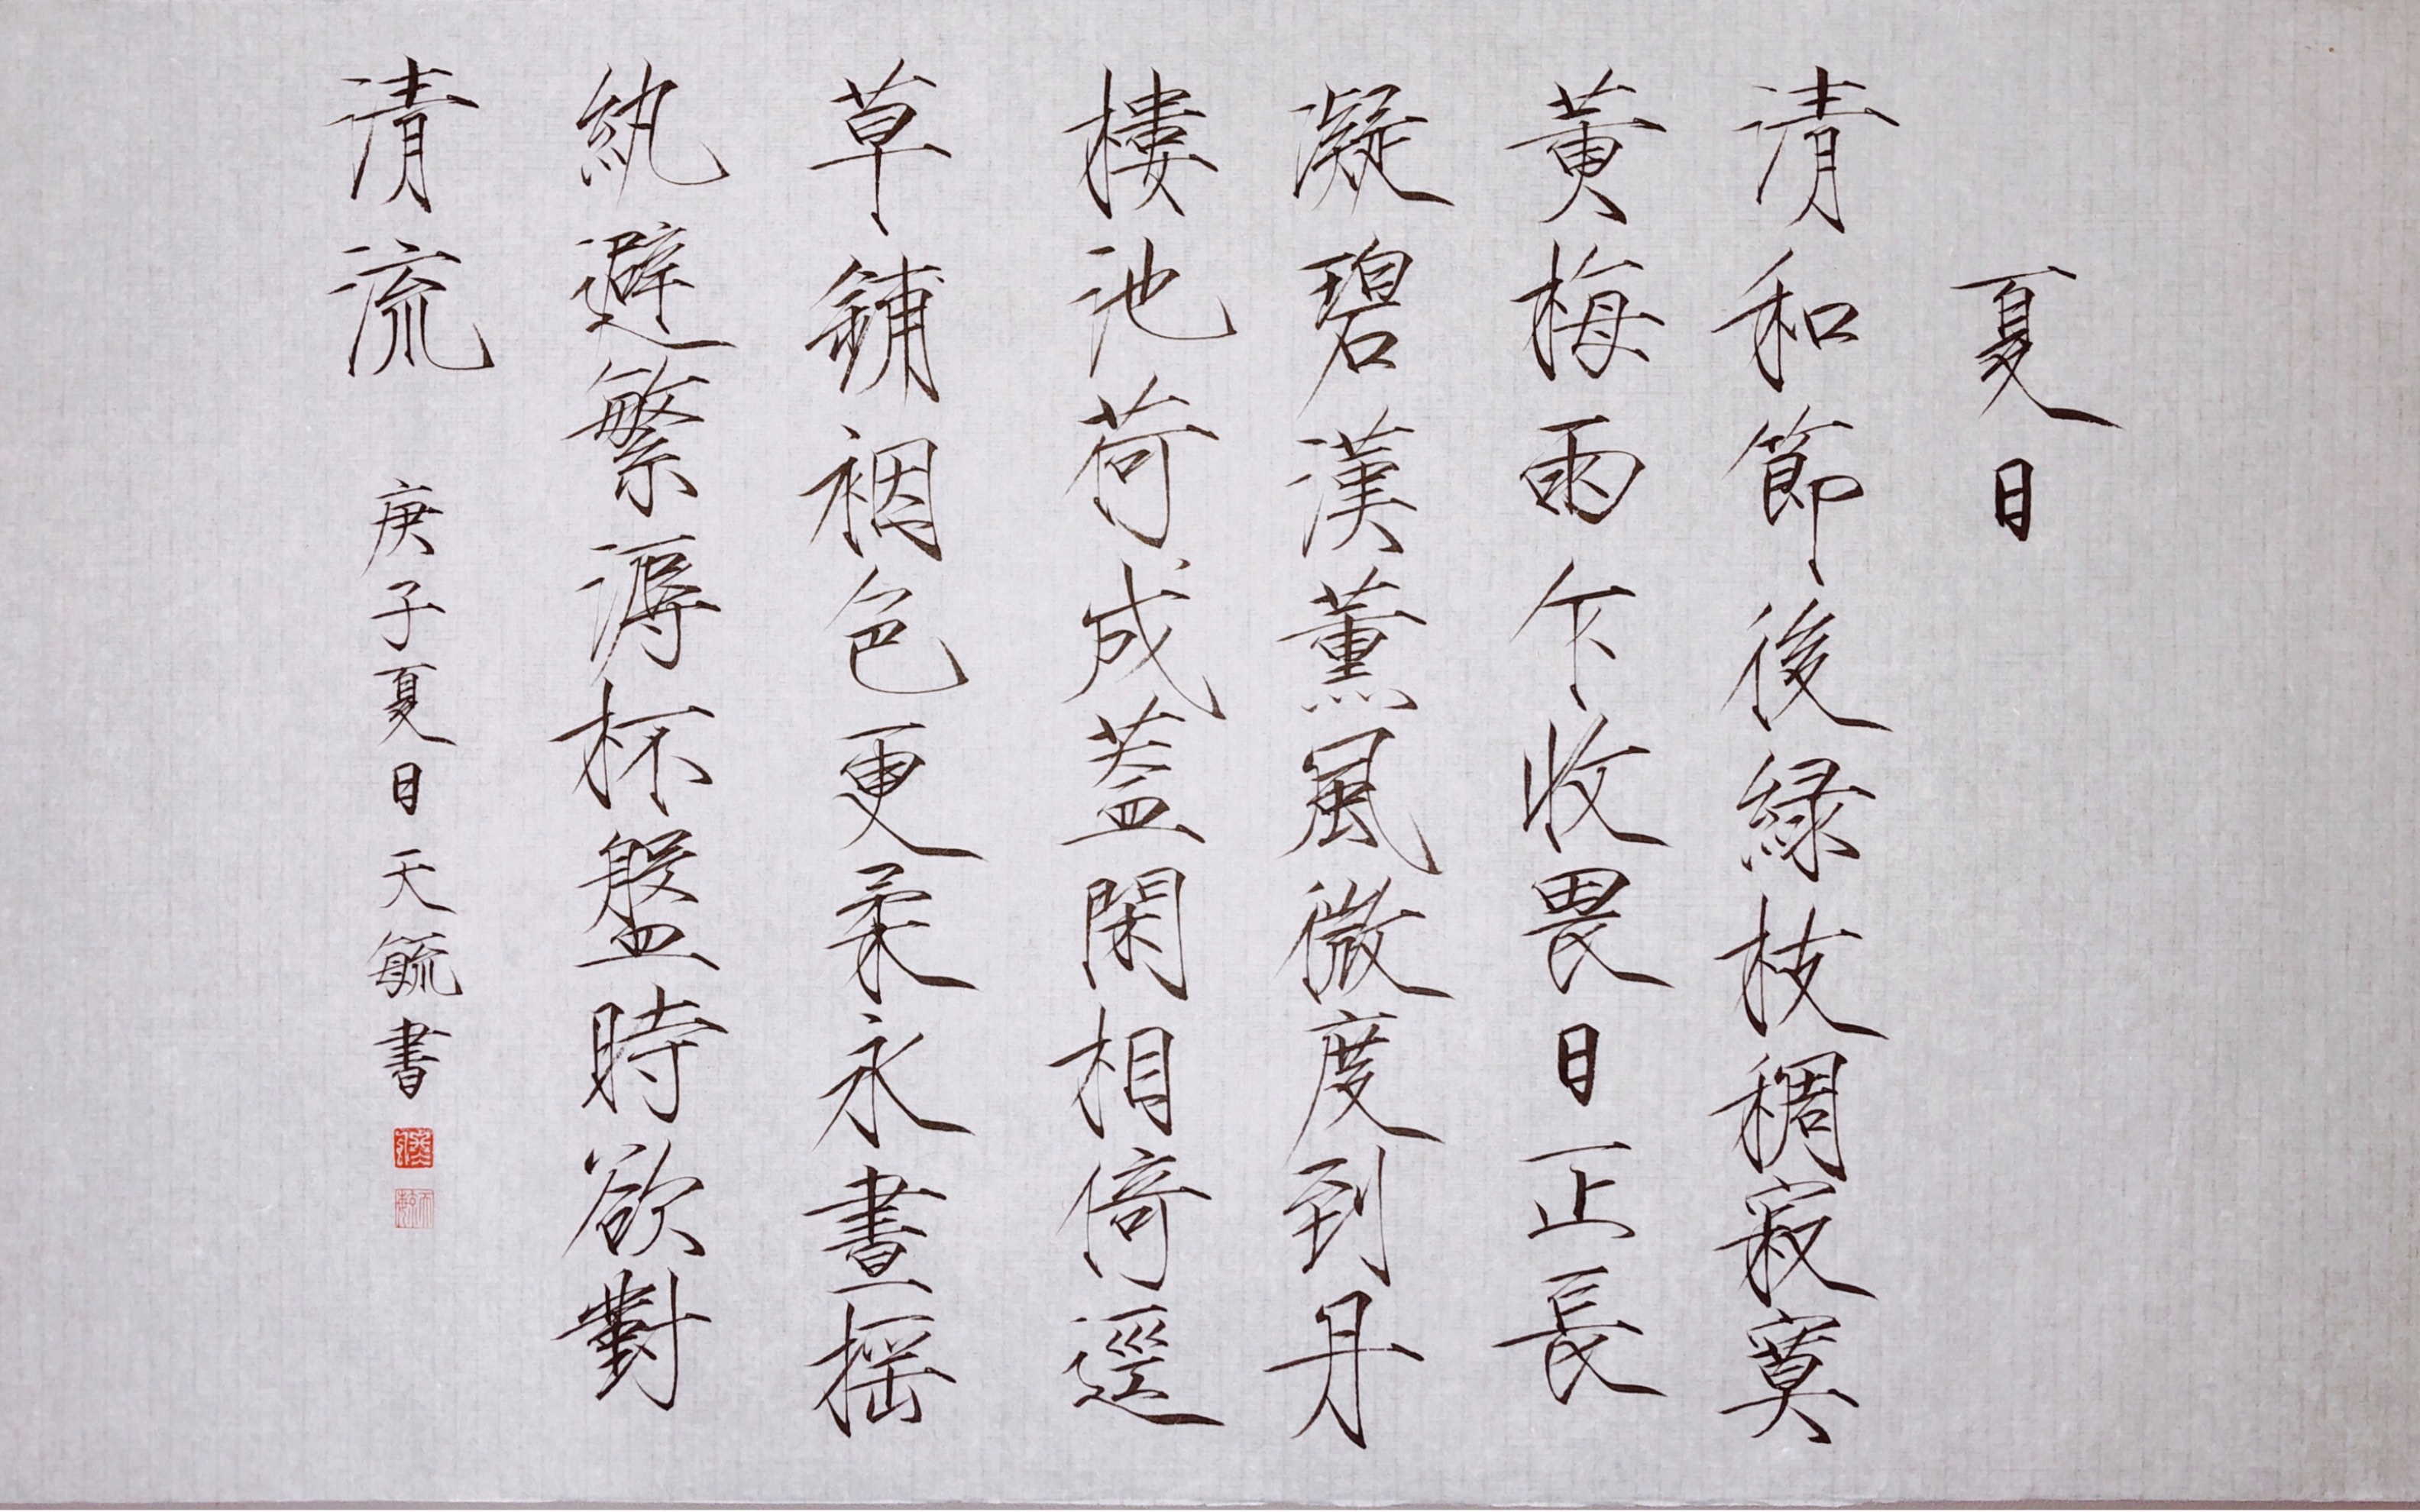 夏日
清和節後綠枝稠寂寞
黃梅雨乍收畏日正長
凝碧漢薰風微度到丹
樓池荷成蓋閑相倚逕
草鋪裀色更柔永晝搖
紈避繁溽杯盤時欲對
清流
庚子夏日天毓書